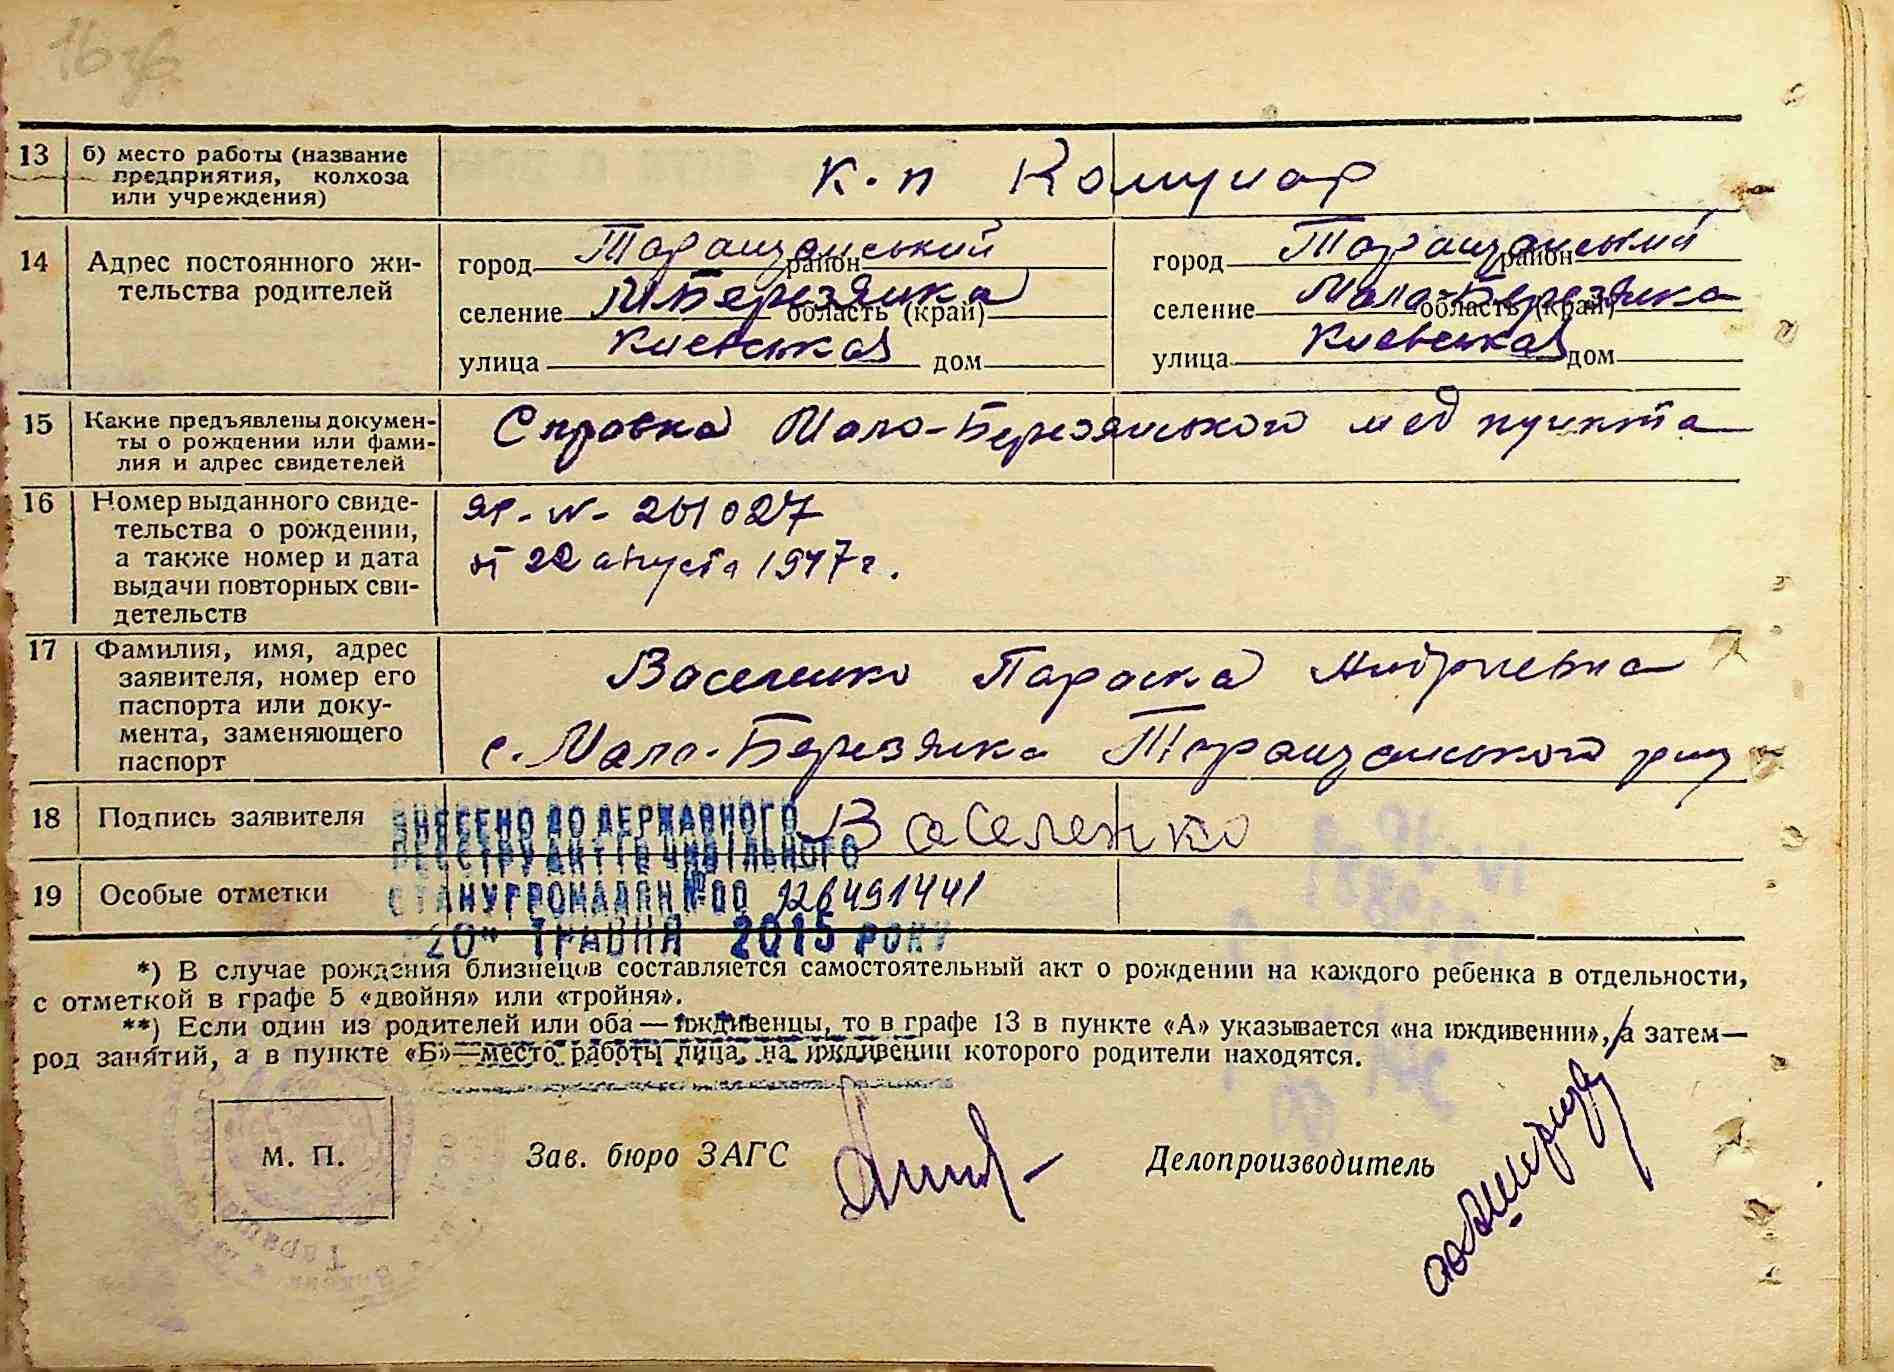 16 зв.
13 б) место работы (название
предприятия, колхоза
или учреждения)
к-п Комунар
14 Адрес постоянного жи-
тельства родителей
город Таращанський район
селение М Березянка область (край)
улица Киевська дом
город Таращанський район
селение Мало-Березянка область (край)
улица Киевська дом
15 Какие предъявлены докумен-
ты о рождении или фами-
лия и адрес свидетелей
Справка Мало-Березянського мед пункта
16 Номер выданного свиде-
тельства о рождении,
а также номер и дата
выдачи повторных сви-
детельств
ЯР-N- 261027
от 22 августа 1947 г.
17 Фамилия, имя, адрес
заявителя, номер его
паспорта или доку-
мента, заменяющего
паспорт
Васеленко Параска Андриевна
с. Мало-Березянка Таращанського р-ну
18 Подпись заявителя
Васеленко
19 Особые отметки
ВНЕСЕНО ДО ДЕРЖАВНОГО
РЕЄСТРУ АКТІВ ЦИВІЛЬНОГО
СТАНУ ГРОМАДЯН №00 126491441
"20" ТРАВНЯ 2015 РОКУ
*) В случае рождения близнецов составляется самостоятельный акт о рождении на каждого ребенка в отдельности,
с отметкой в графе 5 «двойня» или «тройня».
**) Если один из родителей или оба — иждивенцы, то в графе 13 в пункте «А» указывается «на иждивении», а затем—
род занятий, а в пункте «Б»—место работы лица, на иждивении которого родители находятся.
М. П.
Зав. бюро ЗАГС
Делопроизводитель